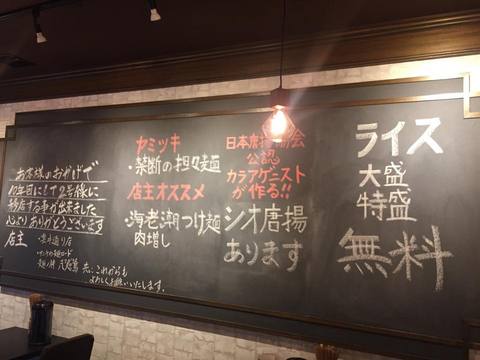 お客様のおかげで
10年目にして2号様に
移店する事が出来ました
心よりありがとうございます
店主
これからも
よろしくお願いいたします。
ヤミツキ
・禁断の担々麺
店主オススメ
・海老潮つけ麺
肉増し
日本唐揚協会
公認
カラアゲニスト
が作る!!
シオ唐揚
あります
ライス
大盛
特盛
無料